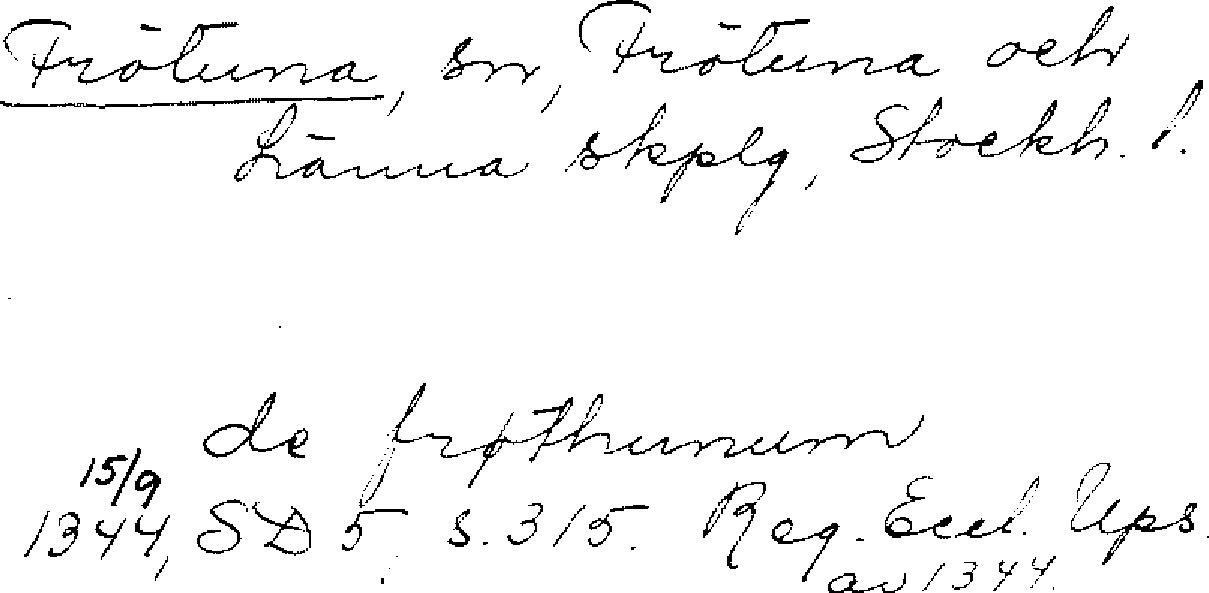 Frötuna, sn, Frötuna och
Länna skplg, Stockh. l.
de frøthunum
15/9
1344, SD 5, s. 315. Reg. Eccl. Ups.
av 1344.